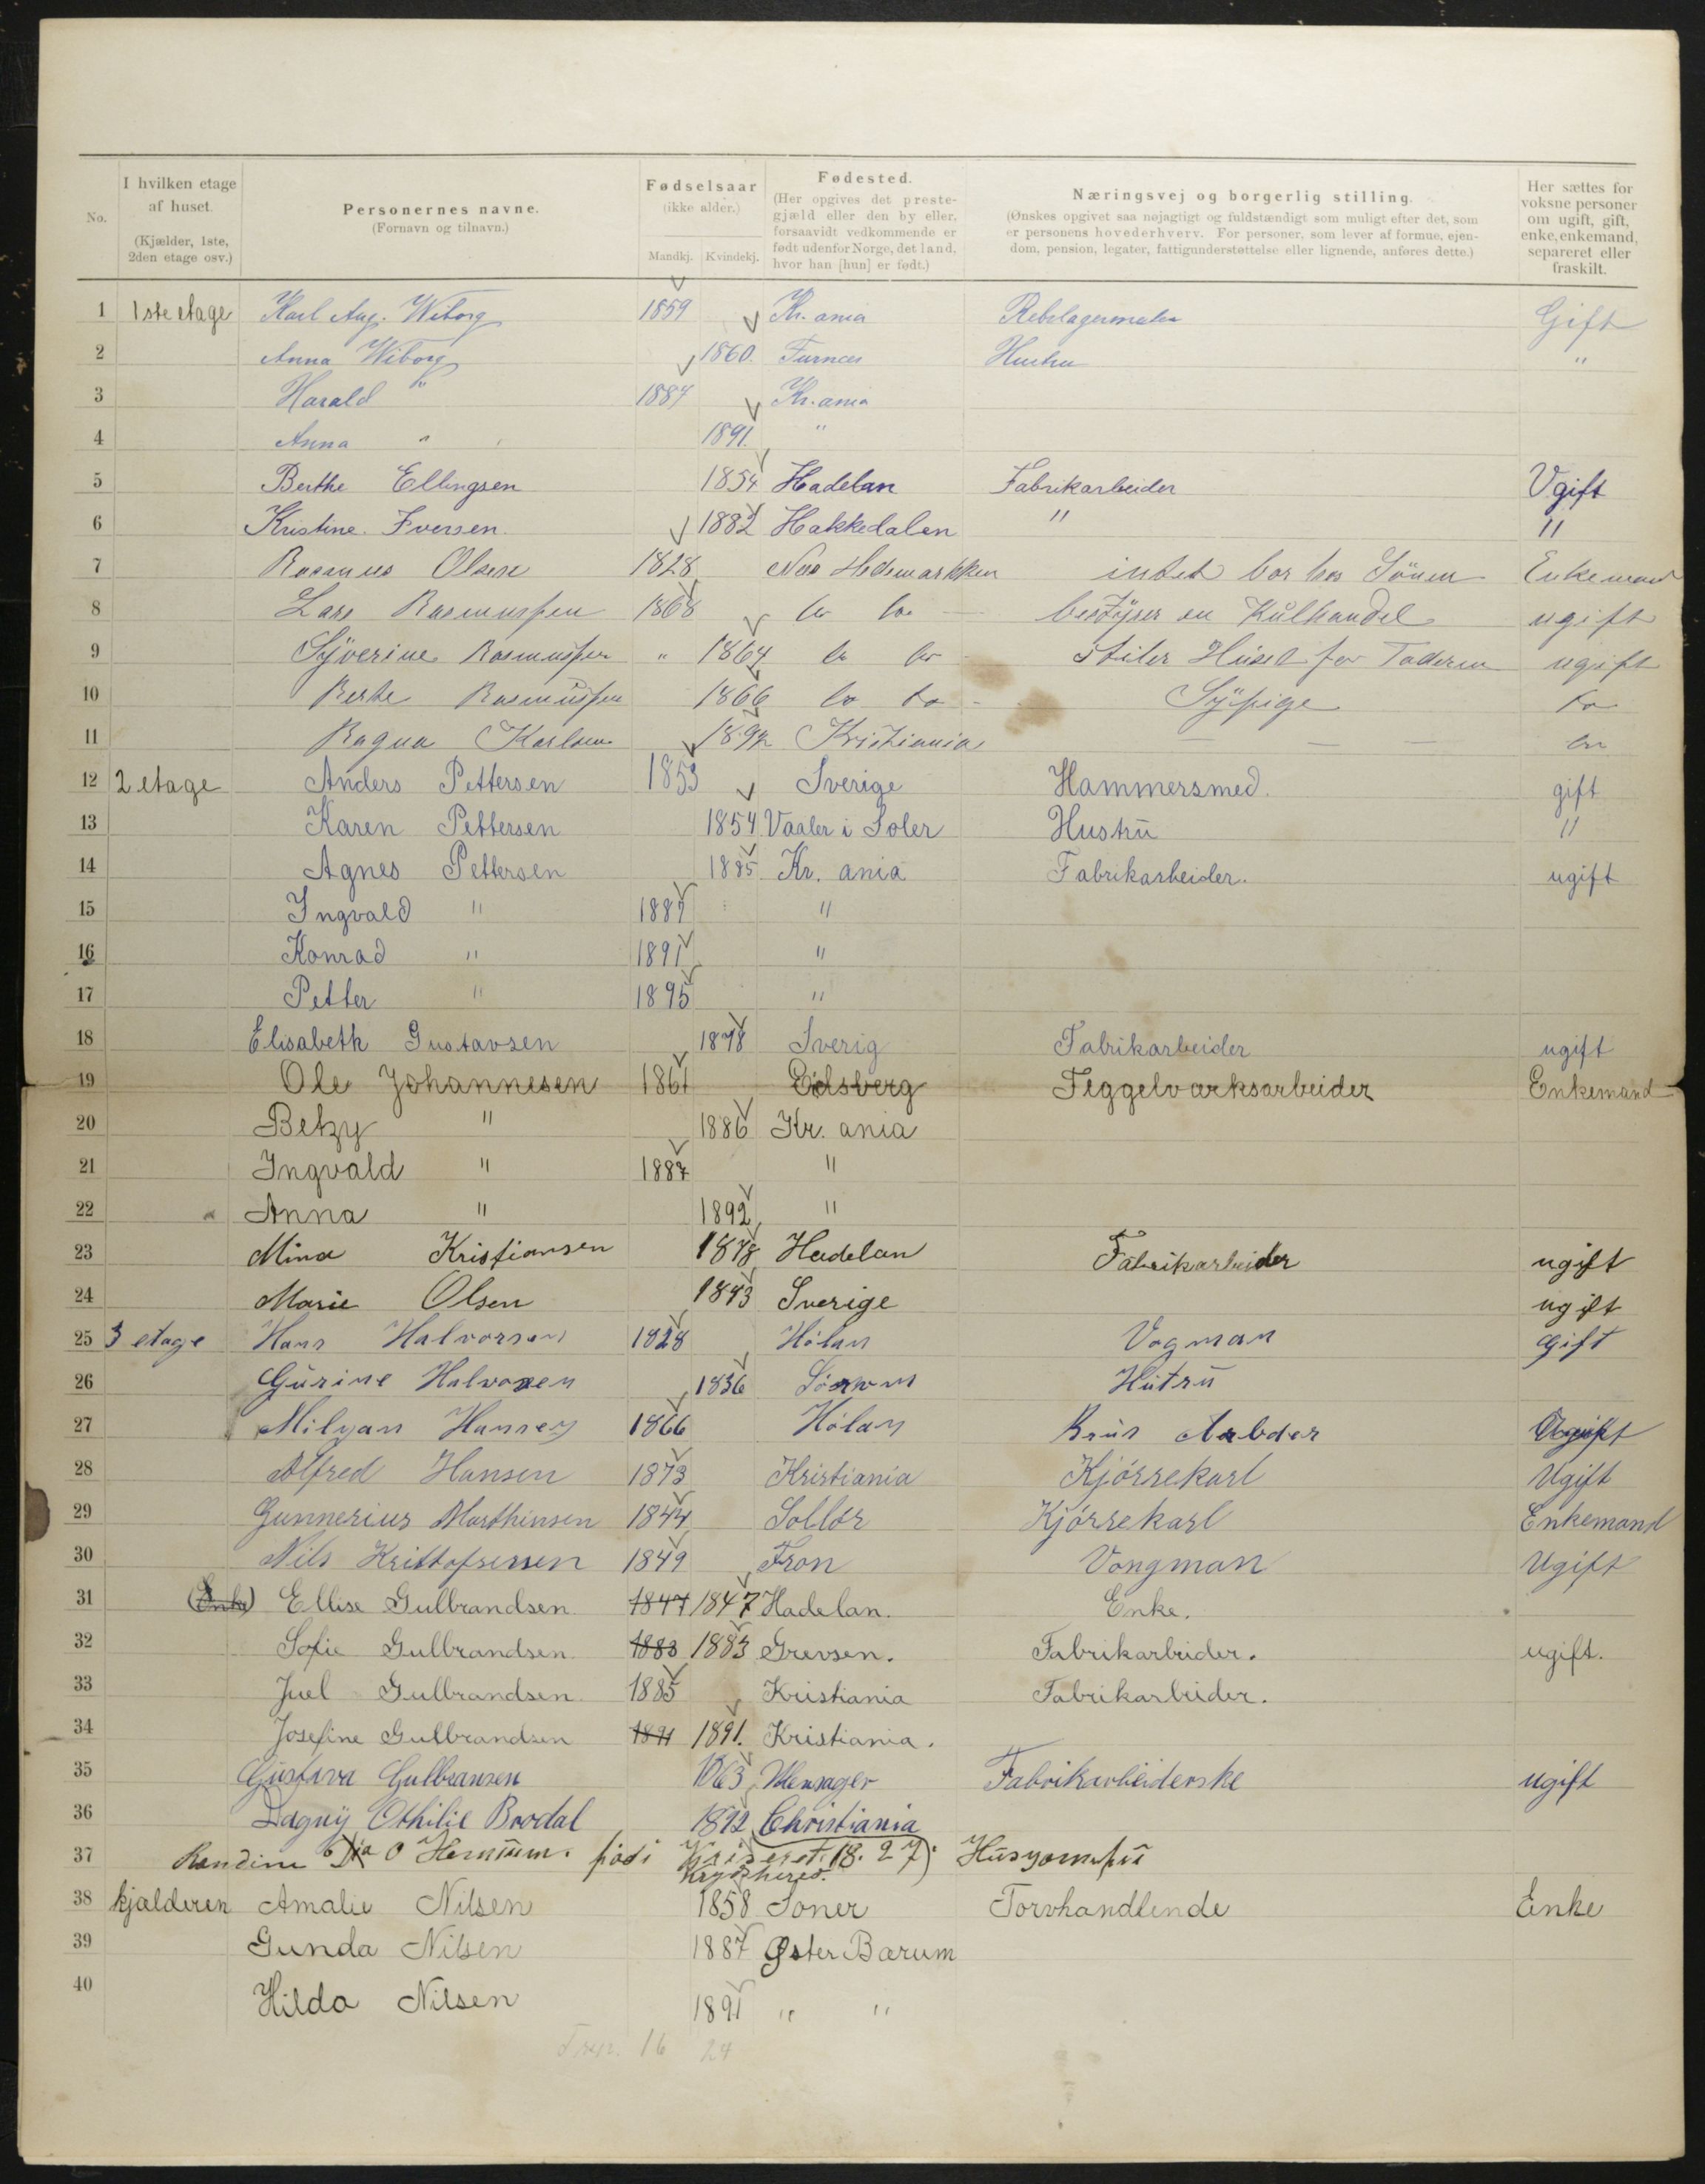 I hvilken etage af huset. (Kjælder, 1ste, 2den etage osv.)
No.
Personernes navne. (Fornavn og tilnavn.)
Fødselsaar (ikke alder.) Mandkj. Kvindekj.
Fødested. (Her opgives det prestegjæld eller den by eller, forsaavidt vedkommende er født udenfor Norge, det land, hvor han [hun] er født.)
Næringsvej og borgerlig stilling. (Ønskes opgivet saa nøjagtigt og fuldstændigt som muligt efter det, som er personens hovederhverv. For personer, som lever af formue, ejendom, pension, legater, fattigunderstøttelse eller lignende, anføres dette.)
Her sættes for voksne personer om ugift, gift, enke, enkemand, separeret eller fraskilt.
1 1ste etage Karl Aug. Wiborg 1859 Kr. ania Gift
2 Anna Wiborg 1860. Furnes Hustru "
3 Harald " 1887 Kr. ania
4 Anna " 1891. "
5 Berthe Ellingsen 1854 Hadelan Fabrikarbeider Ugift
6 Kristine Iversen 1882 Hakkedalen " "
7 Rasmus Olsen 1828 Nes Hedemarkken intet bor hos Sönen Enkemand
8 Lars Rasmussen 1868 do do bestÿrer en Kulhandel ugift
9 Sÿverine Rasmussen " 1864 do do stiler Huset for Faderen ugift
10 Berte Rasmussen 1866 do do Sÿpige do
11 Ragna Karlsen 1897 Kristiania do
12 2 etage Anders Pettersen 1853 Sverige Hammersmed. gift
13 Karen Pettersen 1854 Vaaler i Soler Hustru "
14 Agnes Pettersen 1885 Kr. ania Fabrikarbeider. ugift
15 Ingvald " 1887 "
16 Konrad " 1891 "
17 Petter " 1895 "
18 Elisabeth Gustavsen 1878 Sverig Fabrikarbeider ugift
19 Ole Johannesen 1861 Eidsberg Teggelværksarbeider Enkemand
20 Betzy " 1886 Kr. ania
21 Ingvald " 1887 "
22 Anna " 1892 "
23 Mina Kristiansen 1878 Hadelan Fabrikarbeider ugift
24 Marie Olsen 1843 Sverige ugift
25 3 etage Hans Halvorsen 1828 Hölan Vogman Gift
26 Gurine Halvorsen 1836 Hutru
27 Milyan Hansen 1866 Hölan Brus Ugift
28 Alfred Hansen 1873 Kristiania Kjörrekarl Ugift
29 Gunnerius Marthinsen 1844 Sollör Kjörrekarl Enkemand
30 Nils Kristofsersen 1849 Fron Vongman Ugift
31 (Enke) Ellise Gulbrandsen 1847 1847 Hadelan. Enke.
32 Sofie Gulbrandsen 1883 1883 Grevsen. Fabrikarbeider. ugift.
33 Juel Gulbrandsen 1885 Kristiania Fabrikarbeider.
34 Josefine Gulbrandsen 1891 1891. Kristiania.
35 Gustava Gulbransen 1863 Fabrikarbeiderske ugift
36 Dagny Othilie Brodal 1892 Christiania
37 Randine födi 18.27)
38 kjælderen Amalie Nilsen 1858 Soner Torvhandlende Enke
39 Gunda Nilsen 1887 Øster Bærum
40 Hilda Nilsen 1891 " "
16 24